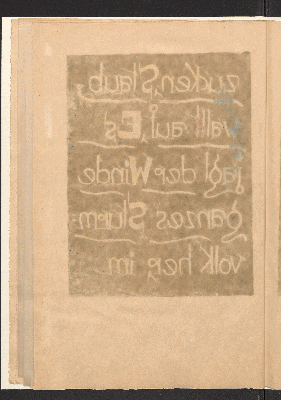 zucken, Staub
wallt auf, Es
jagt der Winde
ganzes Sturm-
volk her, im